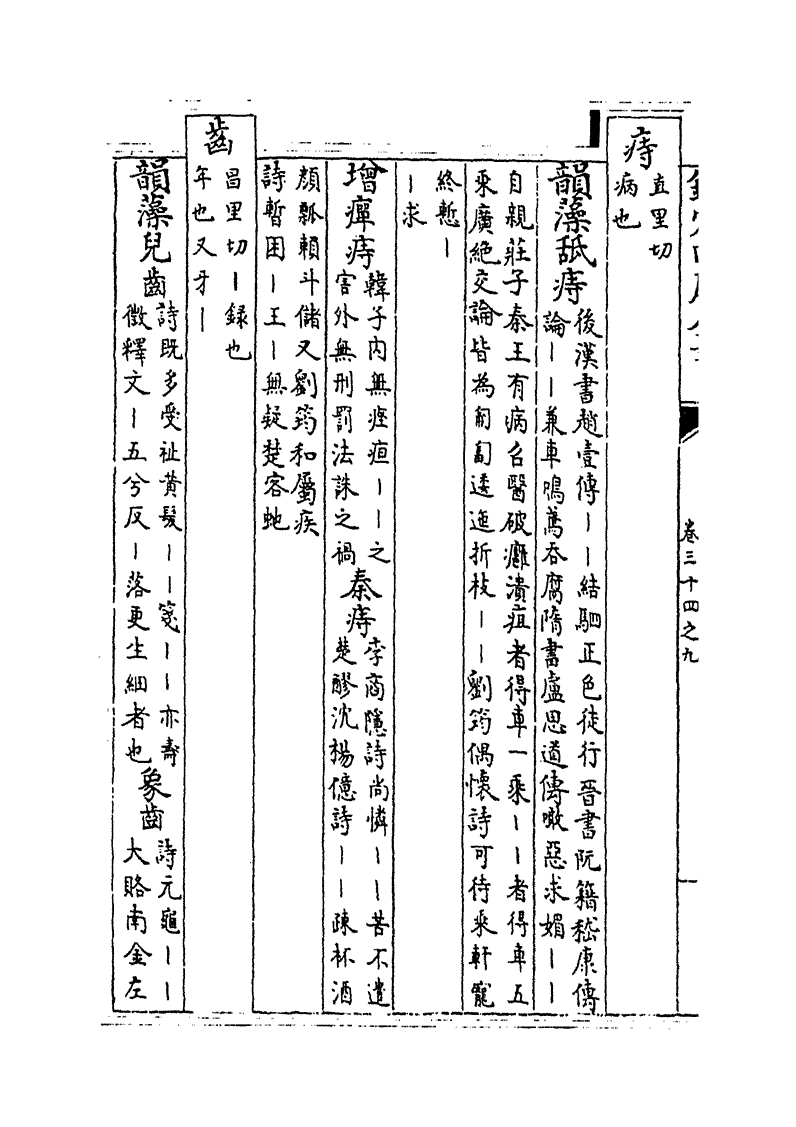 卷三十四之九
痔
直里切
病也
韻藻舐痔
後漢書趙壹傳丨丨結駟正色徒行晉書阮籍嵇康傳
論丨丨兼車鳴鳶吞腐隋書盧思道傳噉惡求媚丨丨
自親莊子秦王有病召醫破癰潰疽者得車一乘丨丨者得車五
乘廣絶交論皆為匍匐逶迤折枝丨丨劉筠偶懷詩可待乘軒寵
終慙丨
丨求
增癉痔
韓子内無痤疽丨丨之
害外無刑罰法誅之禍
秦痔
李商隱詩尚憐丨丨苦不遣
楚醪沈楊億詩丨丨疎杯酒
顔瓢賴斗儲又劉筠和屬疾
詩暫困丨王丨無疑楚客虵
齒
昌里切丨録也
年也又牙丨
韻藻兒齒
詩既多受祉黄髮丨丨箋丨丨亦壽
徵釋文丨五兮反丨落更生細者也
象齒
詩元龜丨丨
大賂南金左